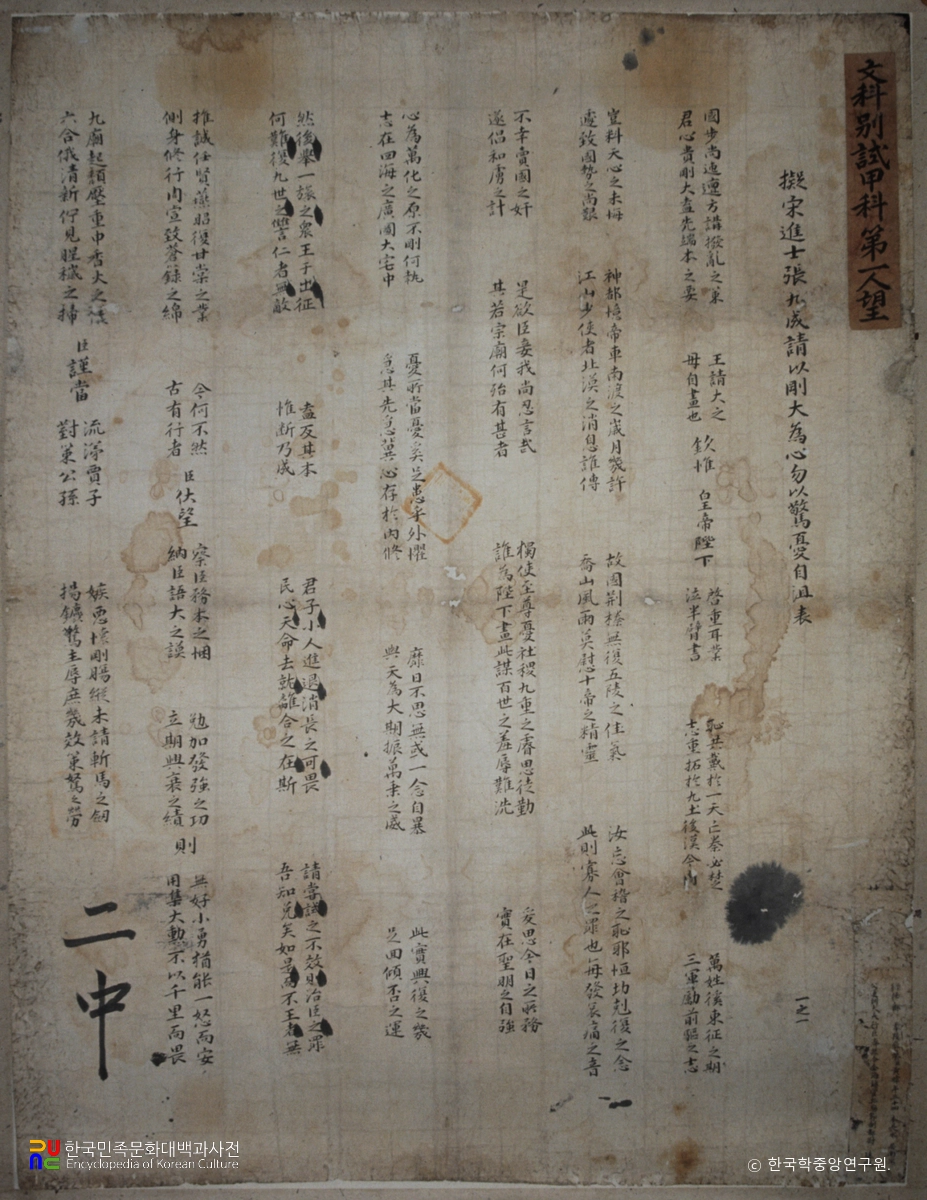 文科别試甲科第一人望
擬宋進士張九成請以剛大為心勿以驚憂自沮表
一之一
國步尚迍邅方講撥亂之策 王請大之
君心貴剛大盍先端本之要 毋自畫也
欽惟 皇帝陛下
啓重耳業 恥共戴於一天亡秦必楚 萬姓徯東征之期
泣半臂書 志重拓於九土後漢今 三軍勵前驅之志
豈料天心之未悔 神都 帝車南渡之歲月幾許 故國荆榛無復五陵之佳氣 汝忘會稽之恥耶恒切剋復之念
遽致國勢之尚艱 江山 使者北漠之消息誰傳 喬山風雨莫慰十帝之精靈 此則寡人之罪也每發哀痛之音
不幸賣國之奸 是欲臣妾我尚忍言哉 獨使至尊憂社稷九重之睿思徒勤 爰思今日之所務
遂倡和虜之計 其若宗廟何殆有甚者 誰為陛下畫此謀百世之羞辱難洗 實在聖明之自強
心為萬化之原不剛何執 憂所當憂奚足患乎外懼 靡日不思無或一念自暴 此實興復之幾
志在四海之廣圖大宅中 急其先急冀心存於內修 與天為大期振萬乘之威 足回傾否之運
然後舉一旅之衆王于出征 盍反其本 君子小人進退消長之可畏 請嘗試之不效則治臣之罪
何難復九世之讐仁者無敵 惟斷乃成 民心天命去就離合之在斯 吾知免矣如是而不王者無
推誠任賢藻昭復甘棠之業 今何不然
側身修行內宣致蒼籙之綿 古有行者
臣伏望
察臣務本之悃 勉加發強之功
納臣語大之謨 立期興衰之績
則
無好小勇猶能一怒而安
用集大勳不以千里而畏
九廟起頹壓重申香火之
六合俄清新佇見腥穢之掃
臣謹當
流涕賈子 嫉惡懷剛腸縱未請斬馬之劒
對策公孫 揚鑣驚主辱庶幾效策駑之勞
二中
한국민족문화대백과사전
Encyclopedia of Korean Culture
ⓒ 한국학중앙연구원